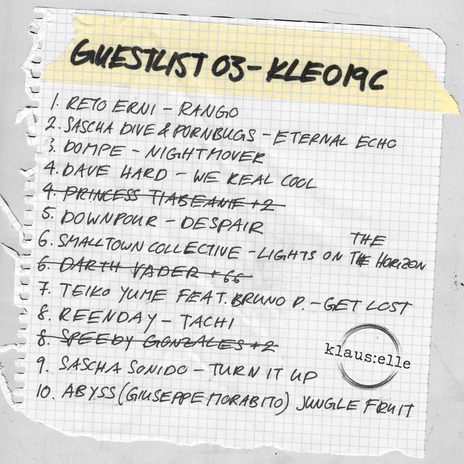 GUESTLIST 03 - KLE019C
1. RETO ERNI - RANGO
2. SASCHA DIVE & PORNBUGS - ETERNAL ECHO
3. DOMPE - NIGHTMOVER
4. DAVE HARD - WE REAL COOL
4. PRINCESS TIABEANIE +2
5. DOWNPOUR - DESPAIR
6. SMALLTOWN COLLECTIVE - LIGHTS ON THE THE HORIZON
6. DARTH VADER +66
7. TEIKO YUME FEAT. BRUNO P. - GET LOST
8. REENDAY - TACHI
8. SPEEDY GONZALES +2
klaus:elle
9. SASCHA SONIDO - TURN IT UP
10. ABYSS (GIUSEPPE MORABITO) JUNGLE FRUIT